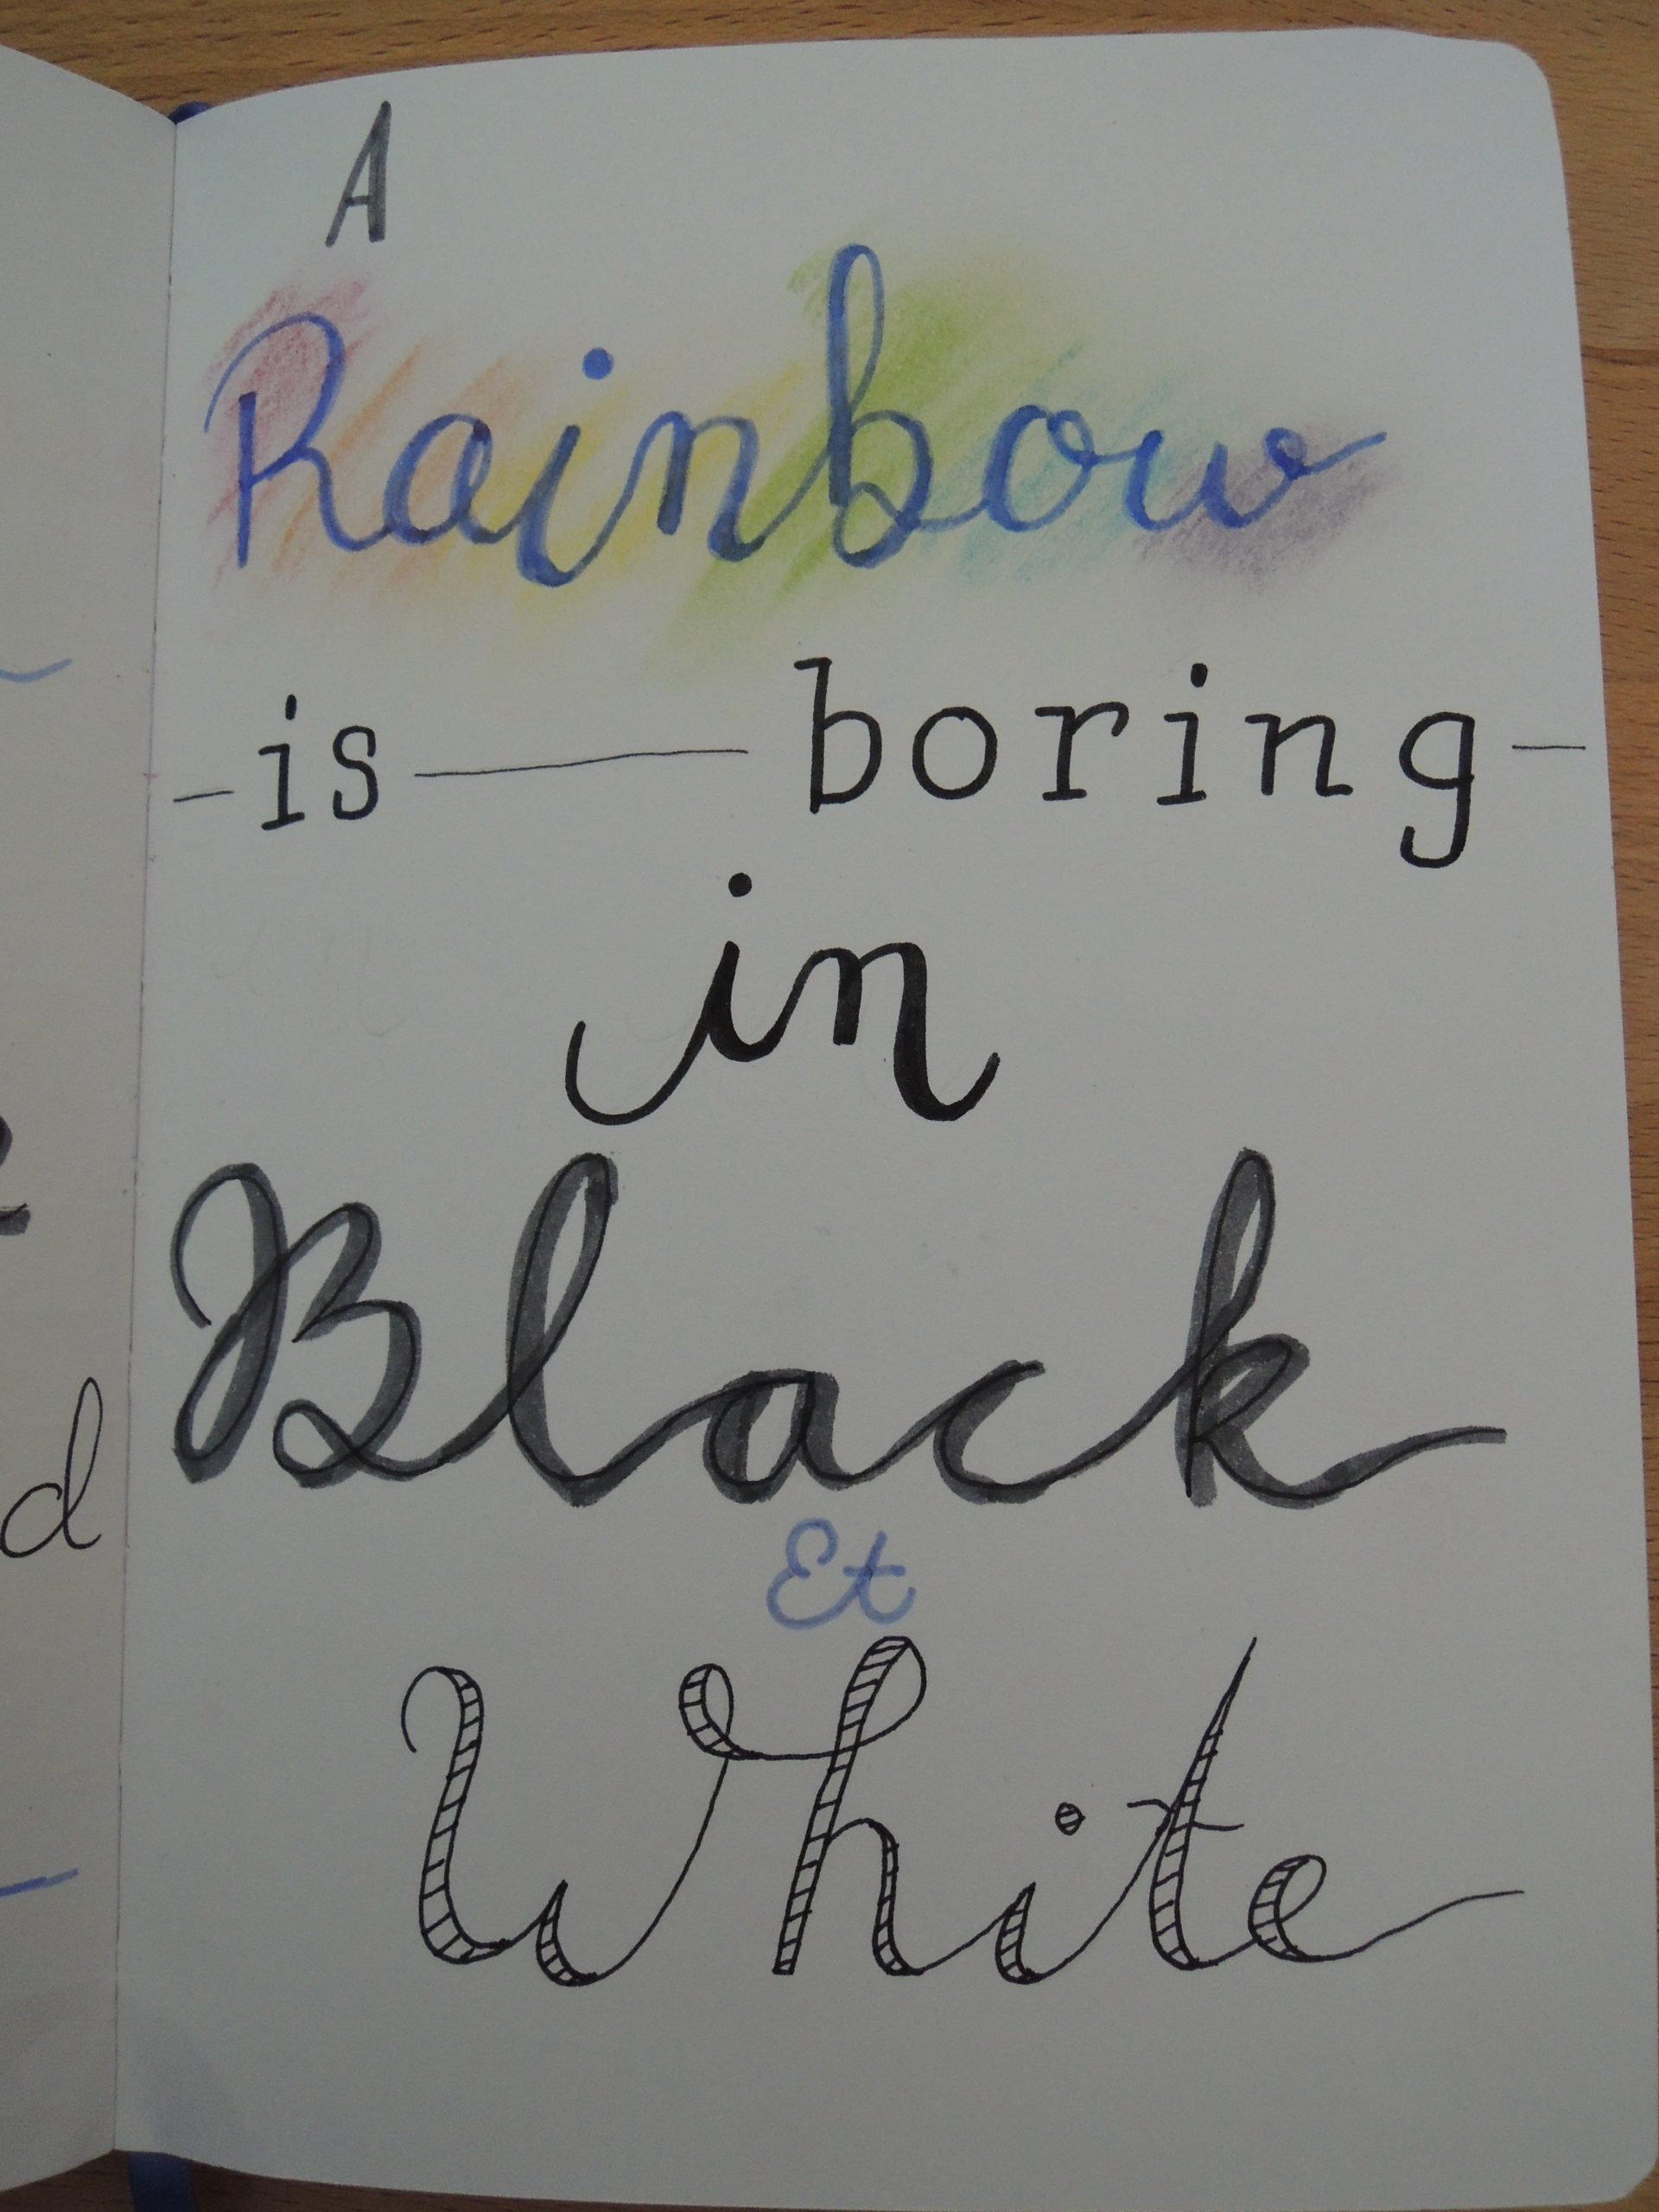 A
Rainbow
is boring
in
Black
Et
White
d